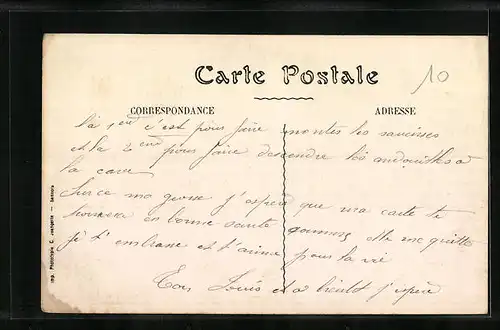 Carte Postale
10
CORRESPONDANCE
ADRESSE
la 1 c'est pour faire monter les saucisses
et la 2 pour faire descendre les andouilles a
la cave
ma j'espère que ma carte te
en bonne santé me quitte
je t'embrasse et t'aime pour la vie
Ton Louis et a bientôt j'espère